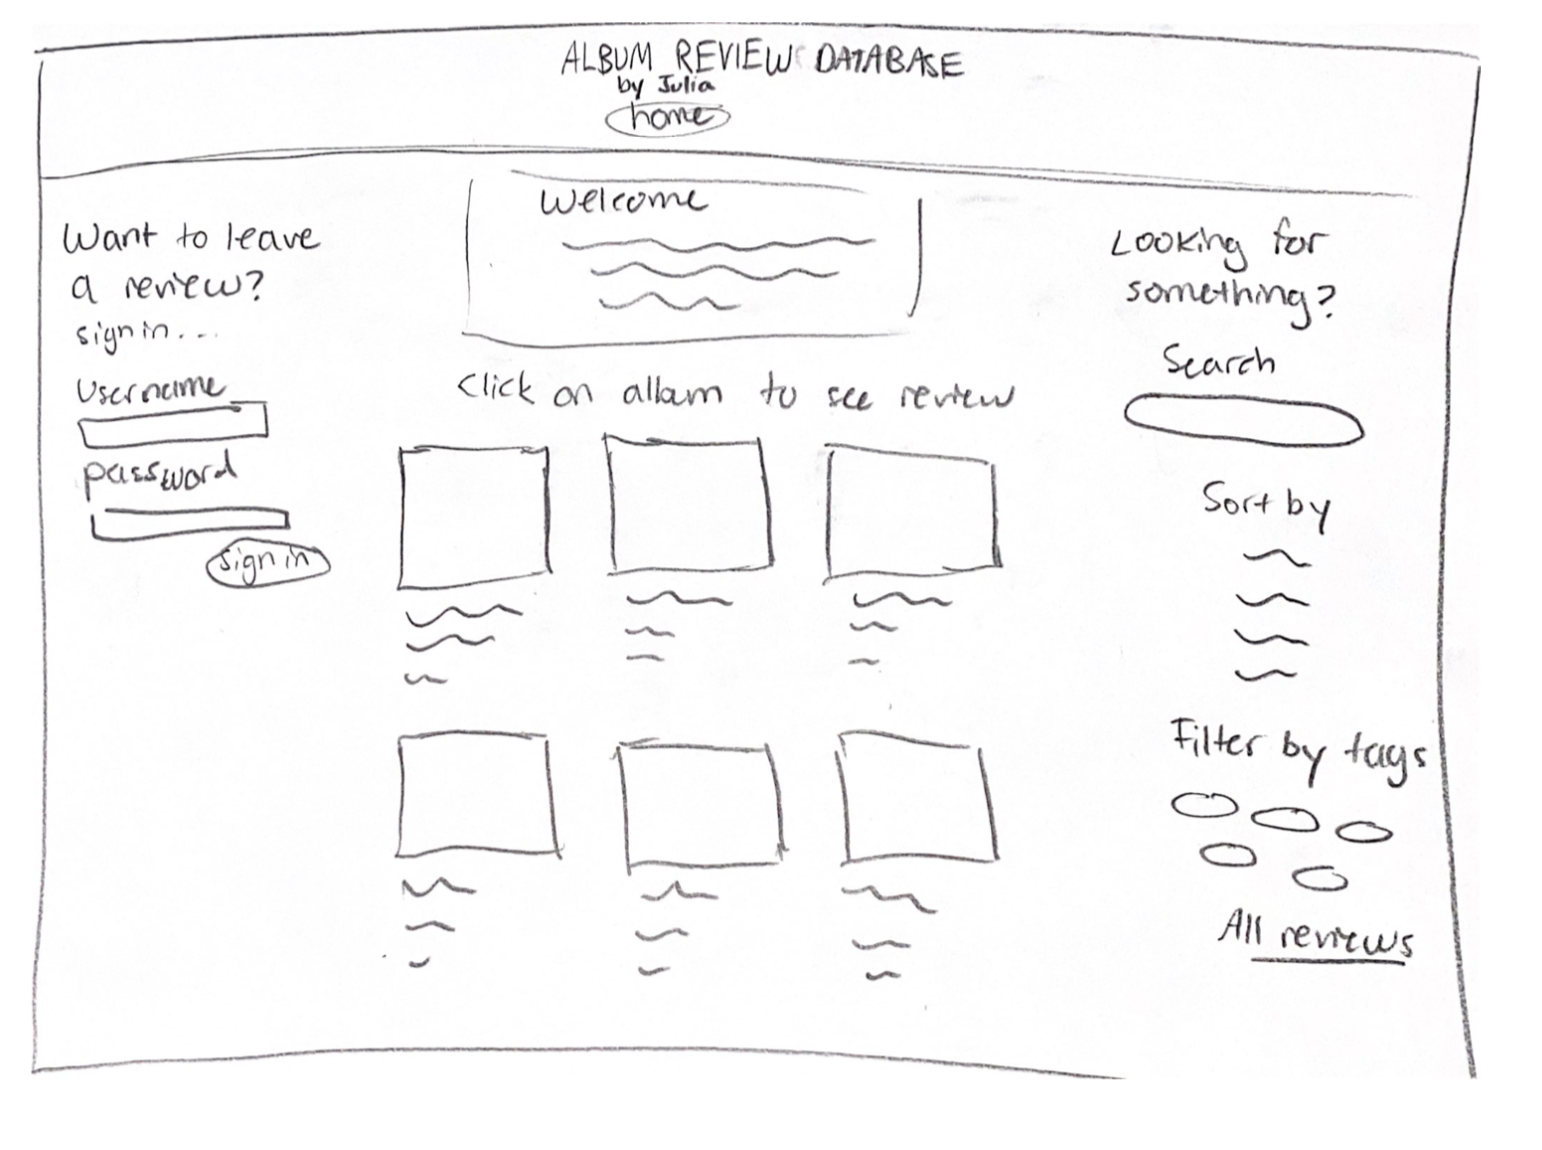 ALBUM REVIEW DATABASE
by Julia
home
Want to leave
a review?
sign in...
Username
password
sign in
Welcome
Click on album to see review
Looking for
something?
Search
Sort by
Filter by tags
All reviews